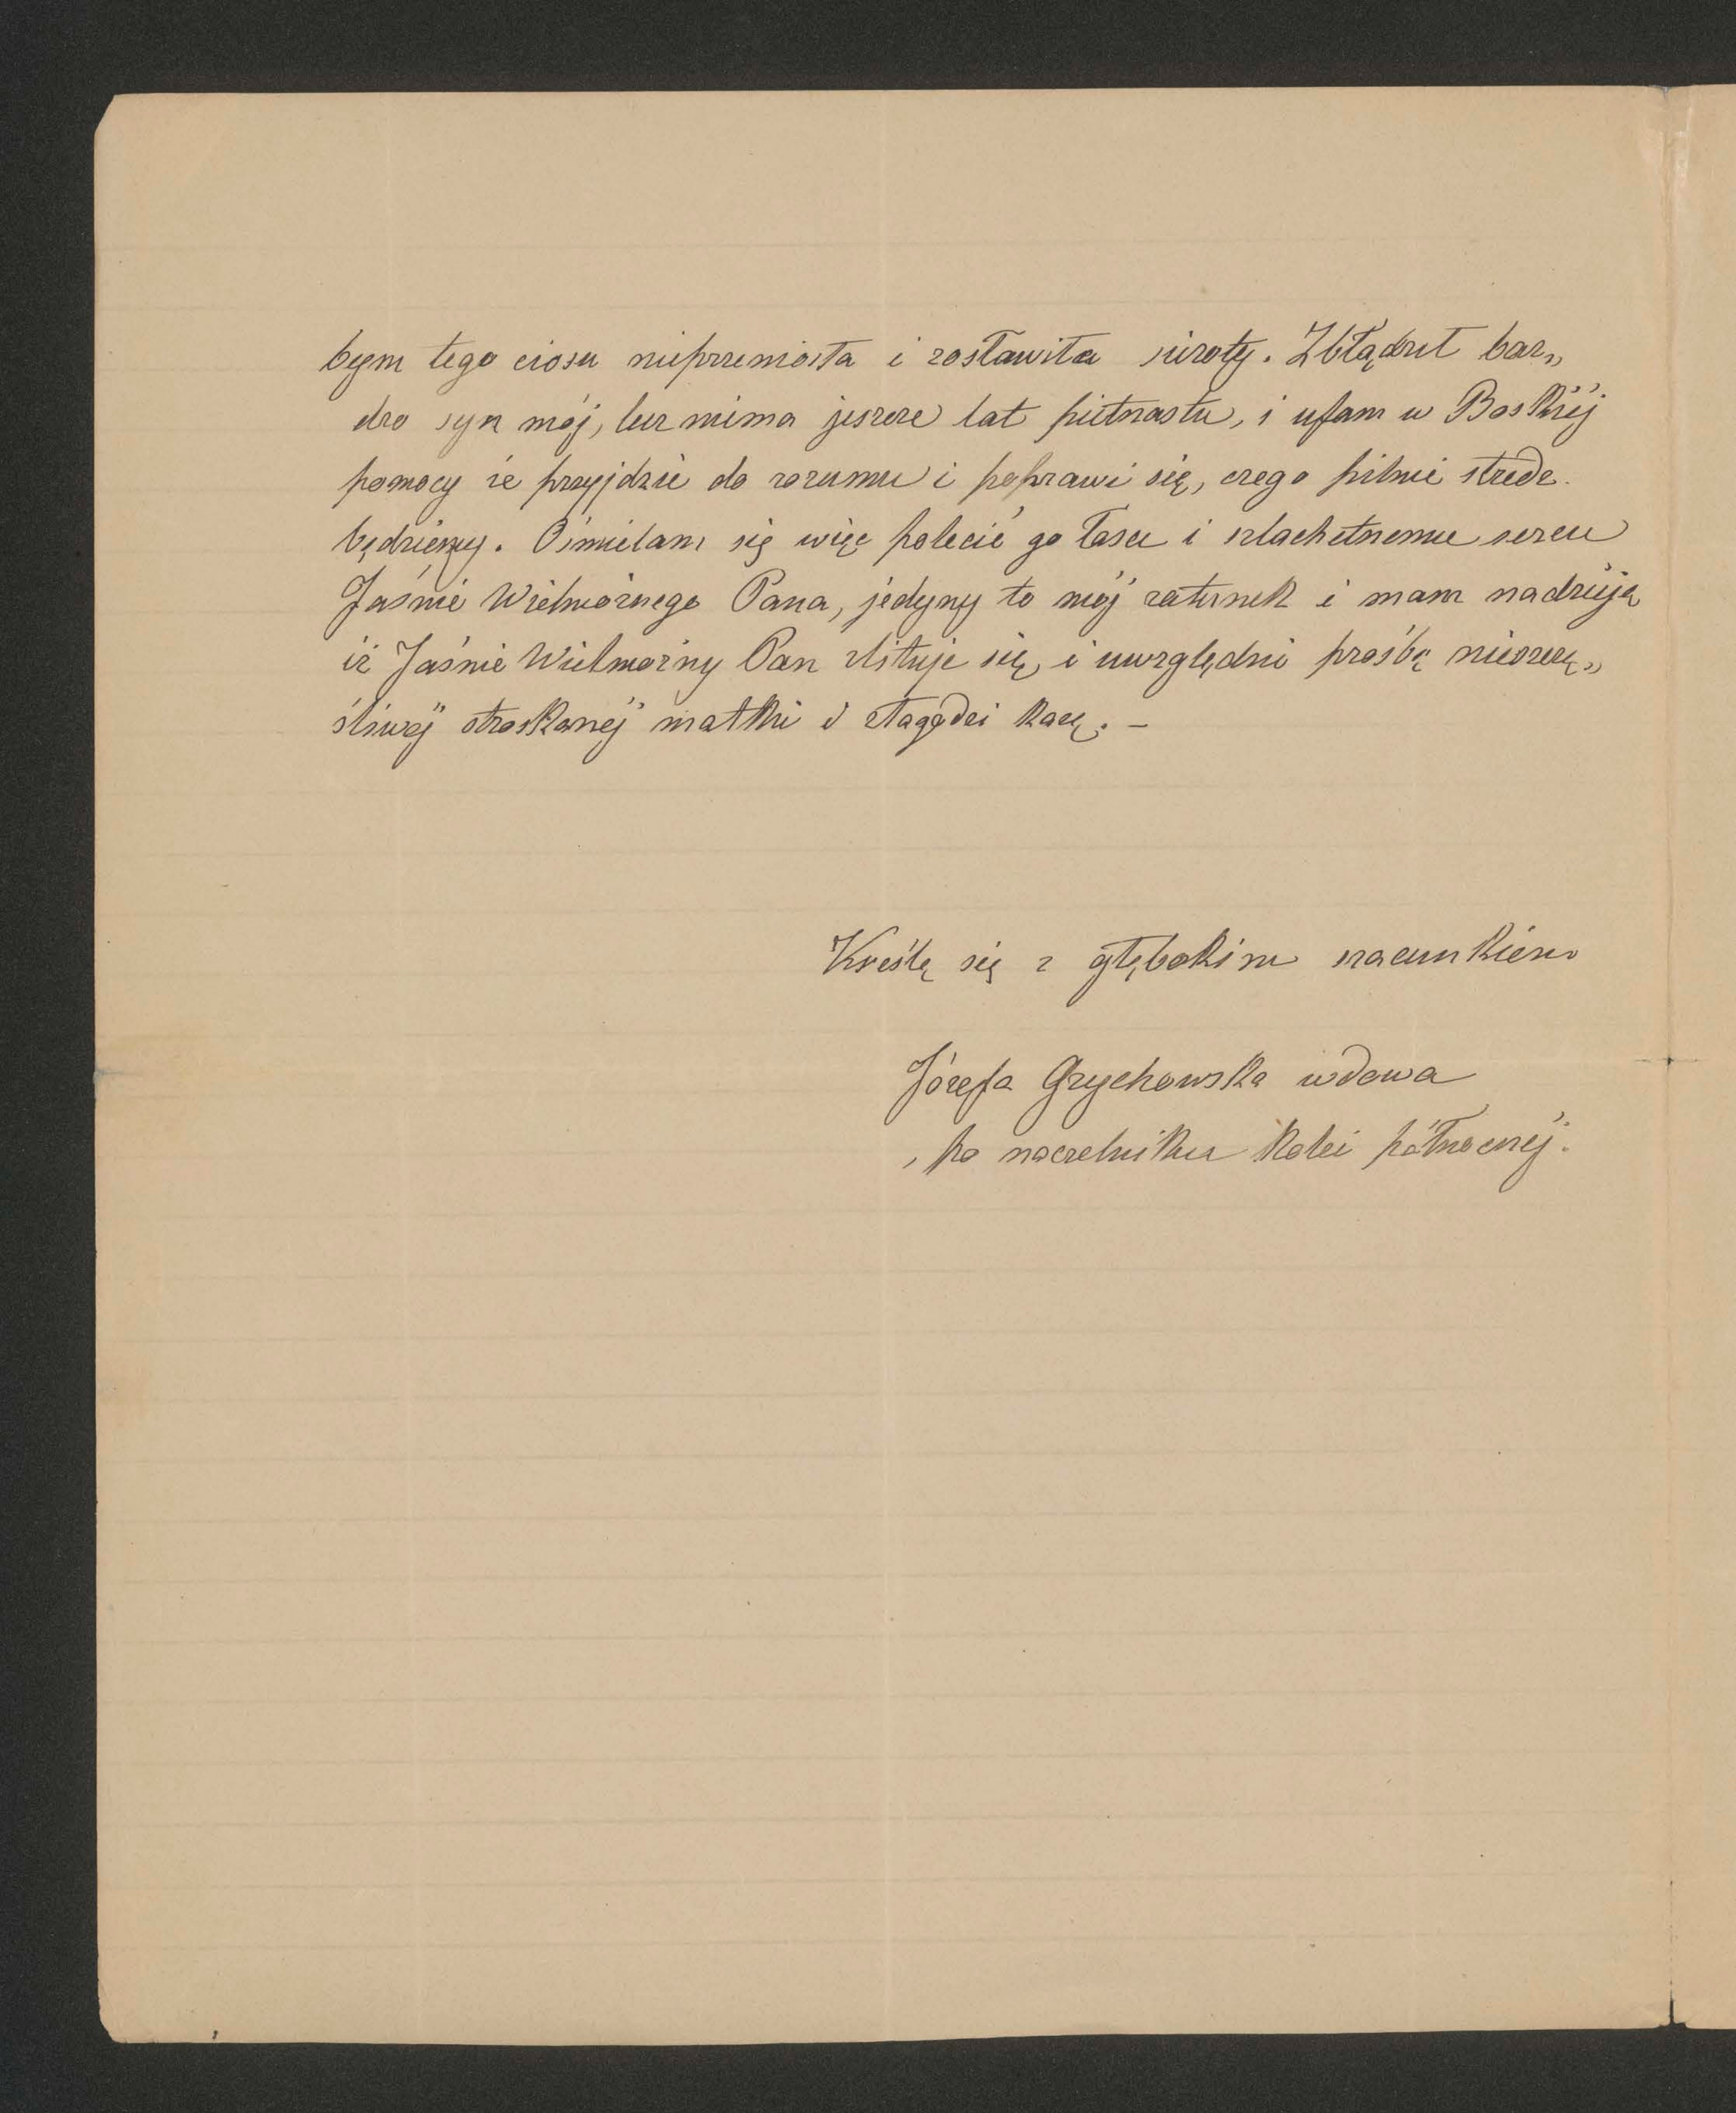 bym tego ciosu nieprzeniosła i zostawiła sieroty. Zbłądził bar„
dzo syn mój, lecz niema jeszcze lat pietnastu, i ufam w Boskiéj
pomocy że przyjdzie do rozumu i poprawi się, czego pilnie strzedz
będziemy. Ośmielam się więc polecić go łasce i szlachetnemu sercu
Jaśnie Wielmożnego Pana, jedyny to mój ratunek i mam nadzieję
iż Jaśnie Wielmożny Pan zlituje się, i uwzględni prośbę nieszczę„
śliwéj stroskanéj matki i złagodzi karę. –
Kreślę się z głębokim szacunkiem
Józefa Grychowska wdowa
po naczelniku kolei północnéj.